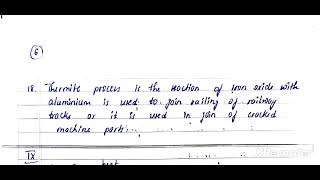 (6)
18. Thermite process is the reaction of iron oxide with
aluminium is used to join railing of railway
tracks or it is used in join of cracked
machine parts.
IX